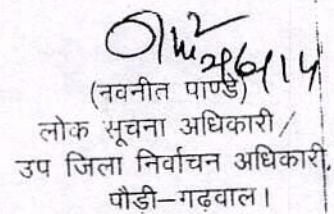 (नवनीत पाण्डे)
लोक सूचना अधिकारी/
उप जिला निर्वाचन अधिकारी,
पौड़ी–गढ़वाल।